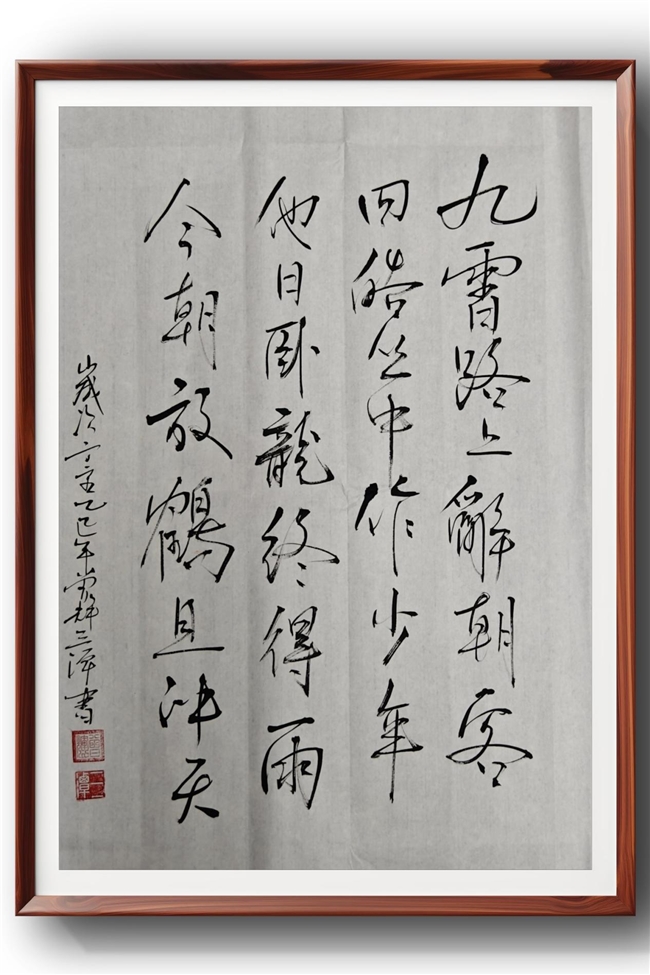 九霄路上辭朝客
四皓丛中作少年
他日卧龍终得雨
今朝放鶴且冲天
歲次乙巳年三書